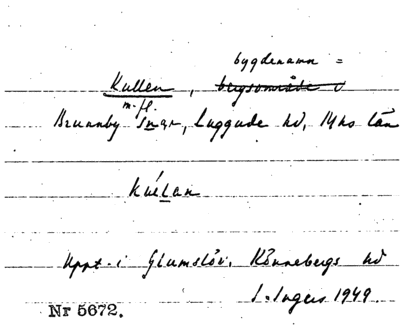 bygdenamn =
Kullen, bergsområde i
m. fl.
Brunnby snr, Luggude hd, Mhs län
Kúllan
Uppt. i Glumslöv, Rönnebergs hd
I. Ingers 1949.
Nr 5672.